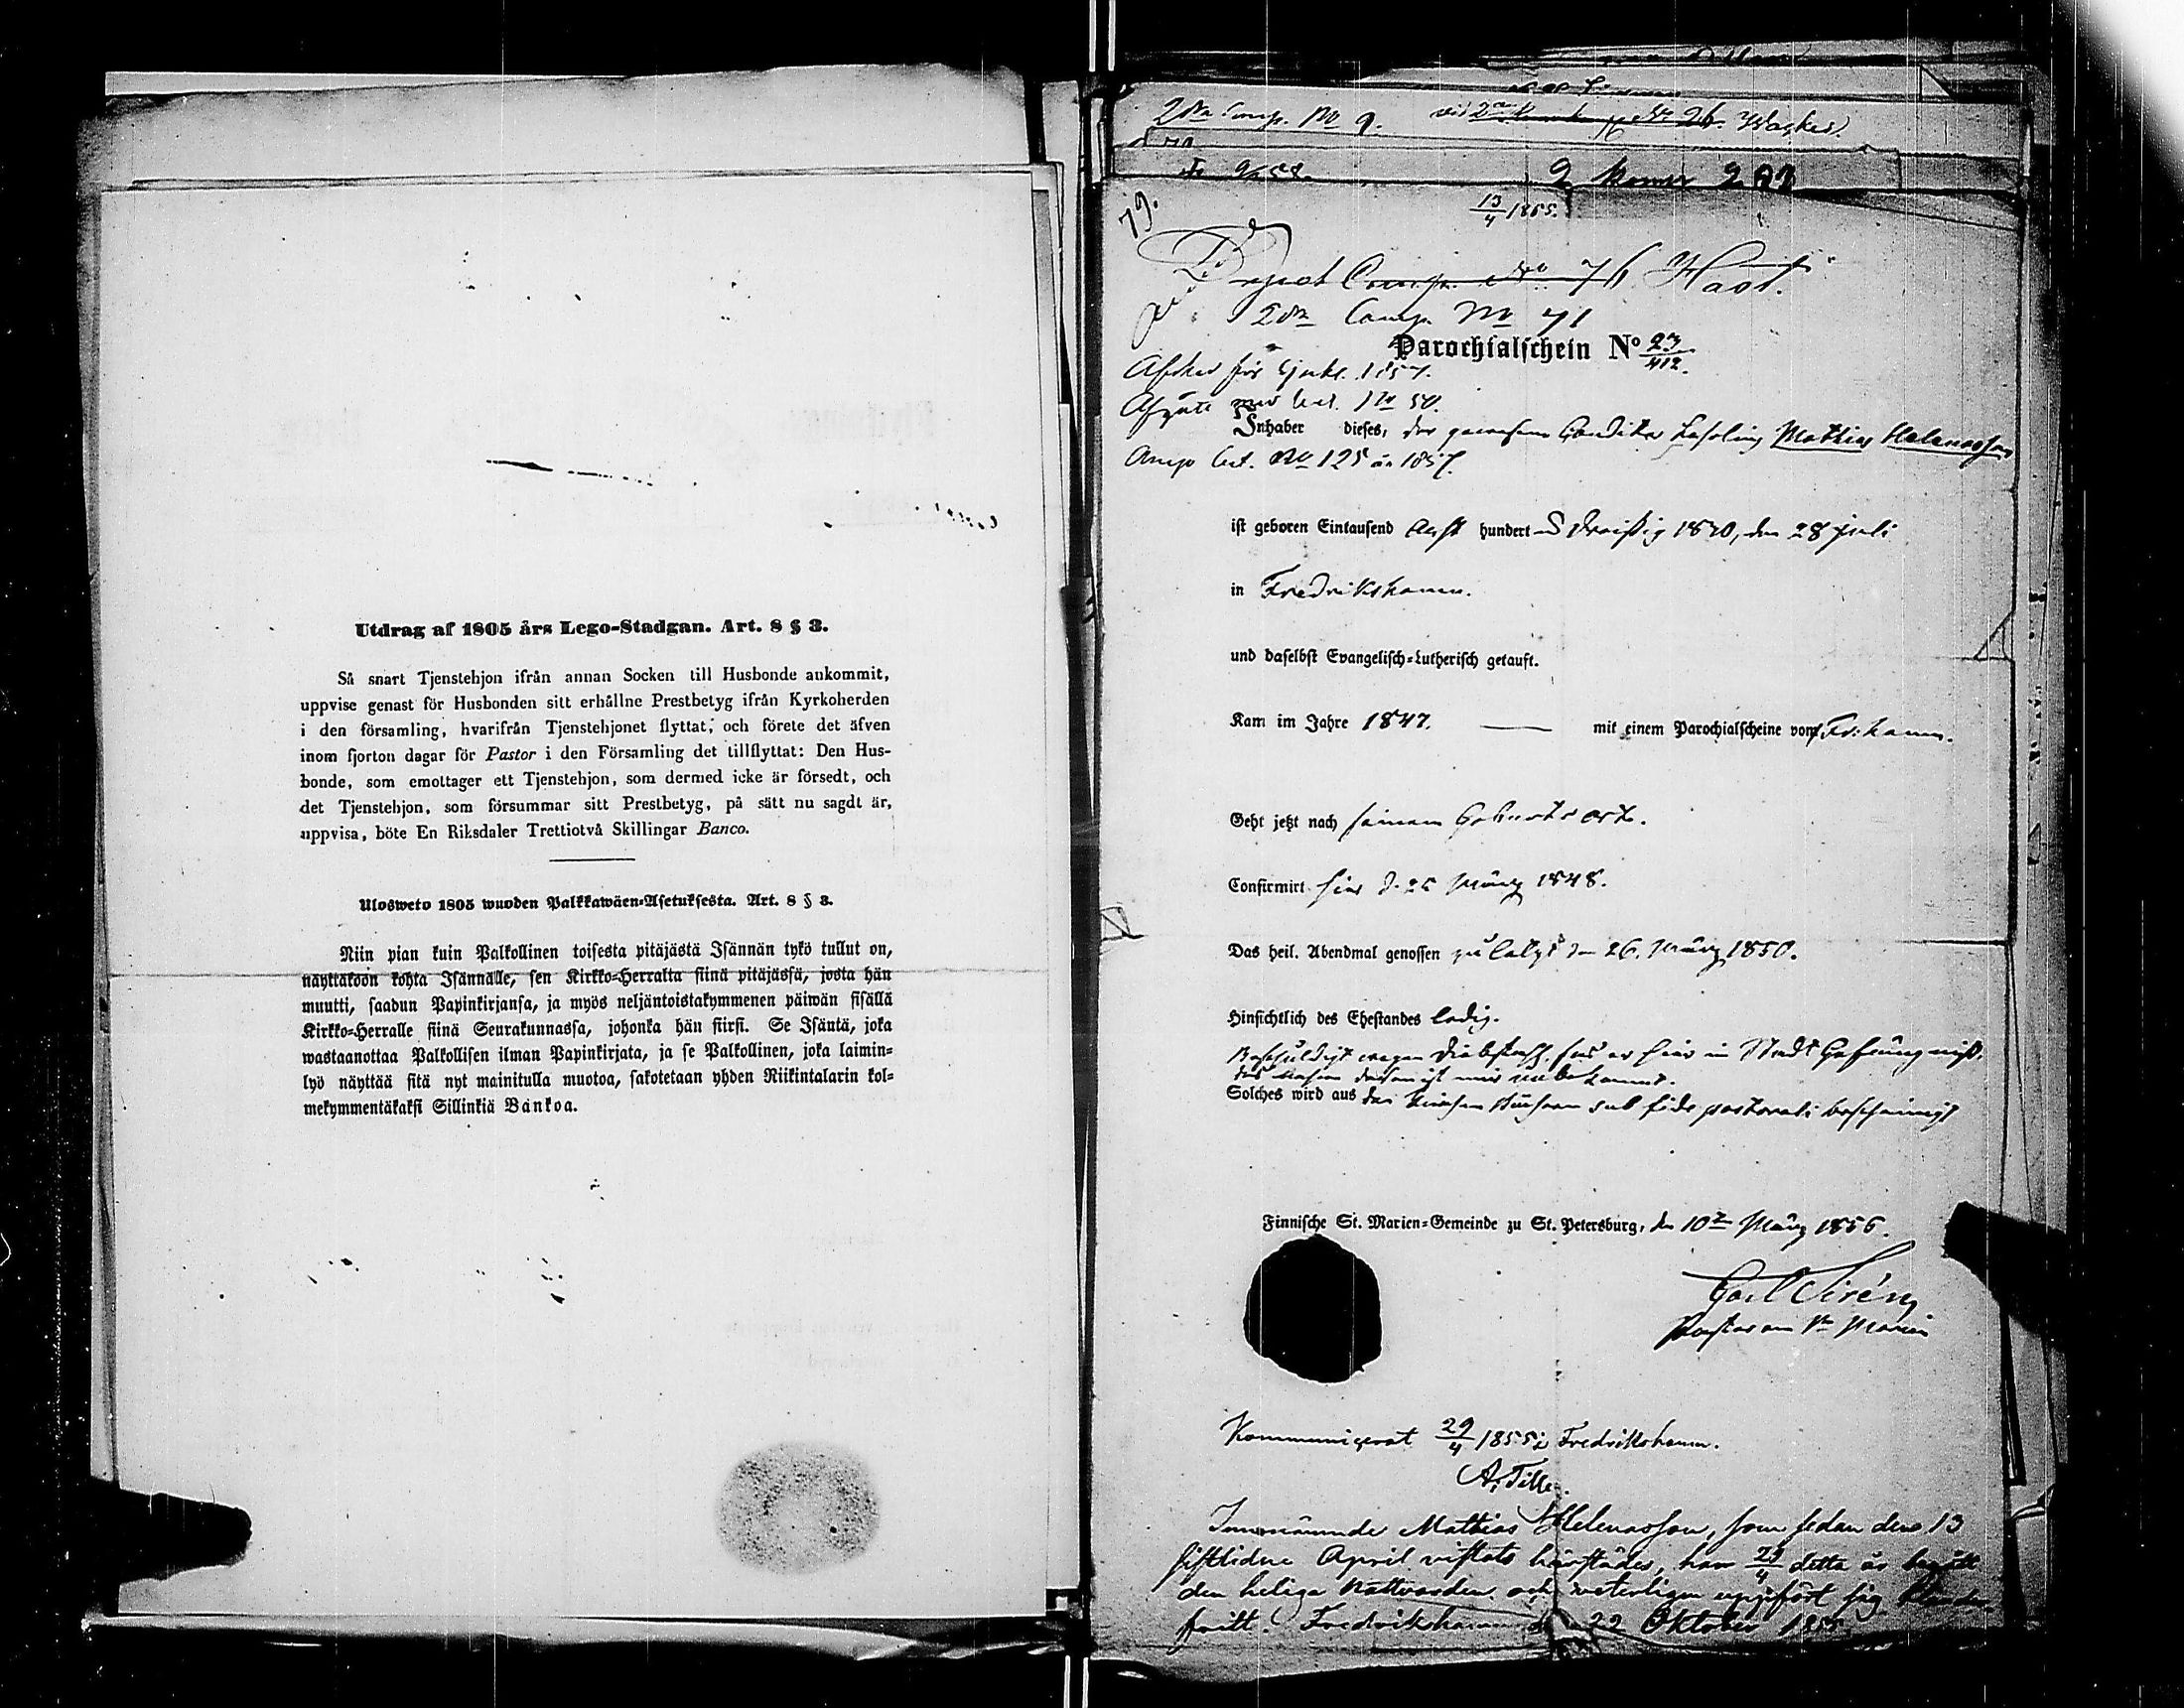 Utdrag af 1805 års Lego-Stadgan. Art. 8 § 3.
Så snart Tjenstehjon ifrån annan Socken till Husbonde ankommit,
uppvise genast för Husbonden sitt erhållne Prestbetyg ifrån Kyrkoherden
i den församling, hvarifrån Tjenstehjonet flyttat, och förete det äfven
inom fjorton dagar för Pastor i den Församling det tillflyttat: Den Hus-
bonde, som emottager ett Tjenstehjon, som dermed icke är försedt, och
det Tjenstehjon, som försummar sitt Prestbetyg, på sätt nu sagdt är,
uppvisa, böte En Riksdaler Trettiotvå Skillingar Banco.
Ulosweto 1805 wuoden Palkkawäen-Asetuksesta. Art. 8 § 3.
Niin pian kuin Palkollinen toisesta pitäjästä Isännän tykö tullut on,
näyttäköön kohta Isännälle, sen Kirkko-Herralta siinä pitäjässä, josta hän
muutti, saadun Papinkirjansa, ja myös neljäntoistakymmenen päiwän sisällä
Kirkko-Herralle siinä Seurakunnassa, johonka hän siirsi. Se Isäntä, joka
wastaanottaa Palkollisen ilman Papinkirjata, ja se Palkollinen, joka laimin-
lyö näyttää sitä nyt mainitulla muotoa, sakotetaan yhden Riikintalarin kol-
mekymmentäkaksi Sillinkiä Bankoa.
2dra Comp. No 9.
79.
13/4 1855.
2dra Comp. No 71
Parochialschein No 23/412.
Inhaber dieses, der gewesene Conditor Lehrling Mathias Helenasson
Comp No 125 år 1857.
ist geboren Eintausend Acht hundert u Dreißig 1830, den 28 Juli
in Fredrikshamn.
und daselbst Evangelisch-Lutherisch getauft.
Kam im Jahre 1847. mit einem Parochialscheine von Fr:hamn.
Geht jetzt nach seinem Geburtsort.
Confirmirt hier d. 25 März 1848.
Das heil. Abendmal genossen zuletzt den 26. März 1850.
Hinsichtlich des Ehestandes ledig.
Beschuldigt wegen Diebstahl, saß er hier im Stadt Gefängniß,
ist mir unbekannt.
Solches wird aus den Kirchen Büchern sub fide pastorali bescheinigt
Finnische St. Marien-Gemeinde zu St. Petersburg, den 10t März 1855.
Carl Sirén
Pastor an St Marien
Kommunicerat 29/4 1855 i Fredrikshamn.
A. Tille.
Innenämnde Mathias Helenasson, som sedan den 13
sistlidne April vistats härstädes, har 29/4 detta år begått
den heliga Nattvarden och veterligen uppfört sig klander
fritt. Fredrikshamn d. 22 Oktober 1855